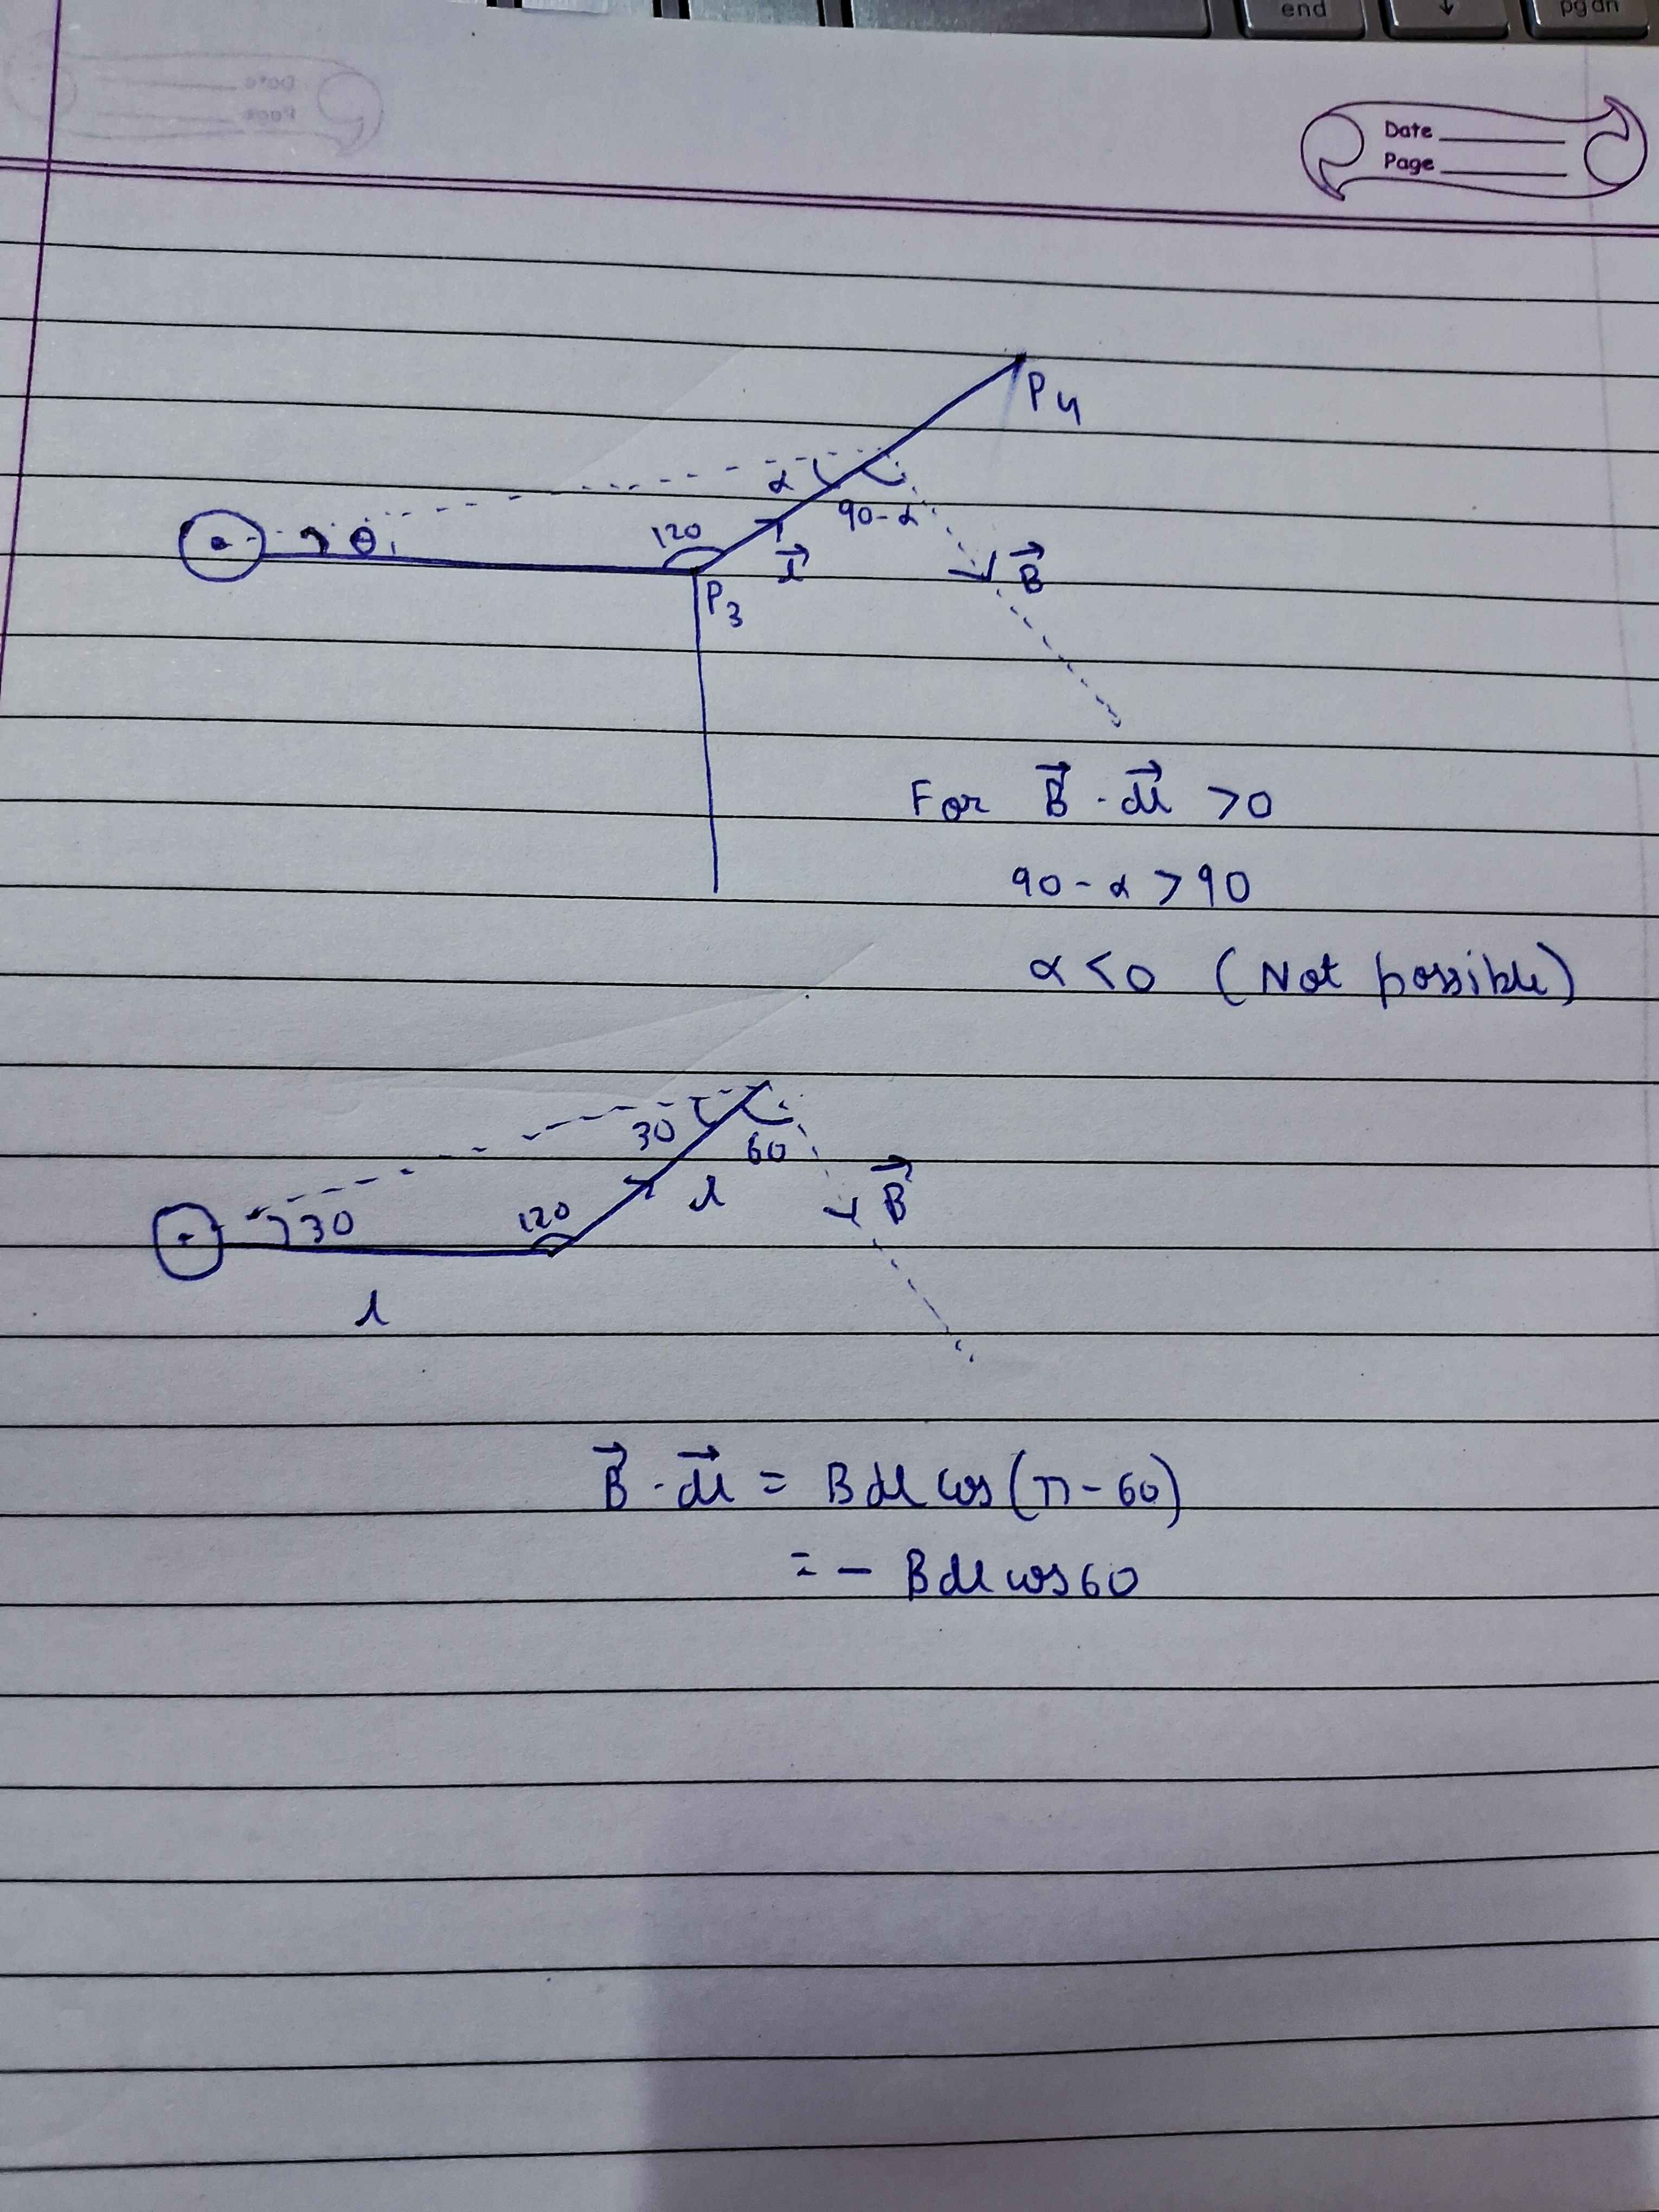 end ↓ pg dn
Date
Page
P4
α
90-α
θ
120
l⃗
B⃗
P3
For B⃗ . dl⃗ >0
90 - α > 90
α < 0 (Not possible)
30
60
B⃗
l
120
30
l
B⃗ . dl⃗ = B dl cos (π - 60)
= - B dl cos 60